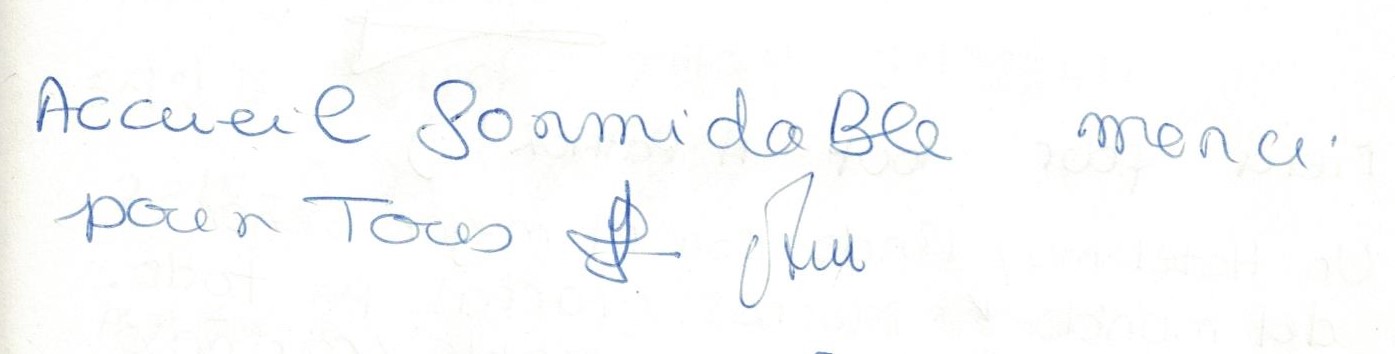 Accueil formidaBle merci
pour Tous